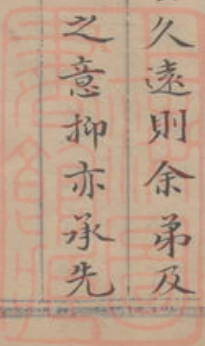 久遠則余弟及
之意抑亦承先